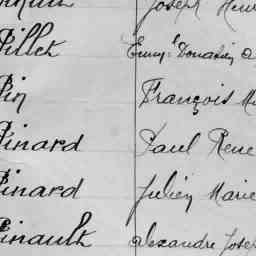 Joseph
Pillet Donatien
Pin François
Pinard Paul Rene
Pinard Julien Marie
Pinault Alexandre Josep